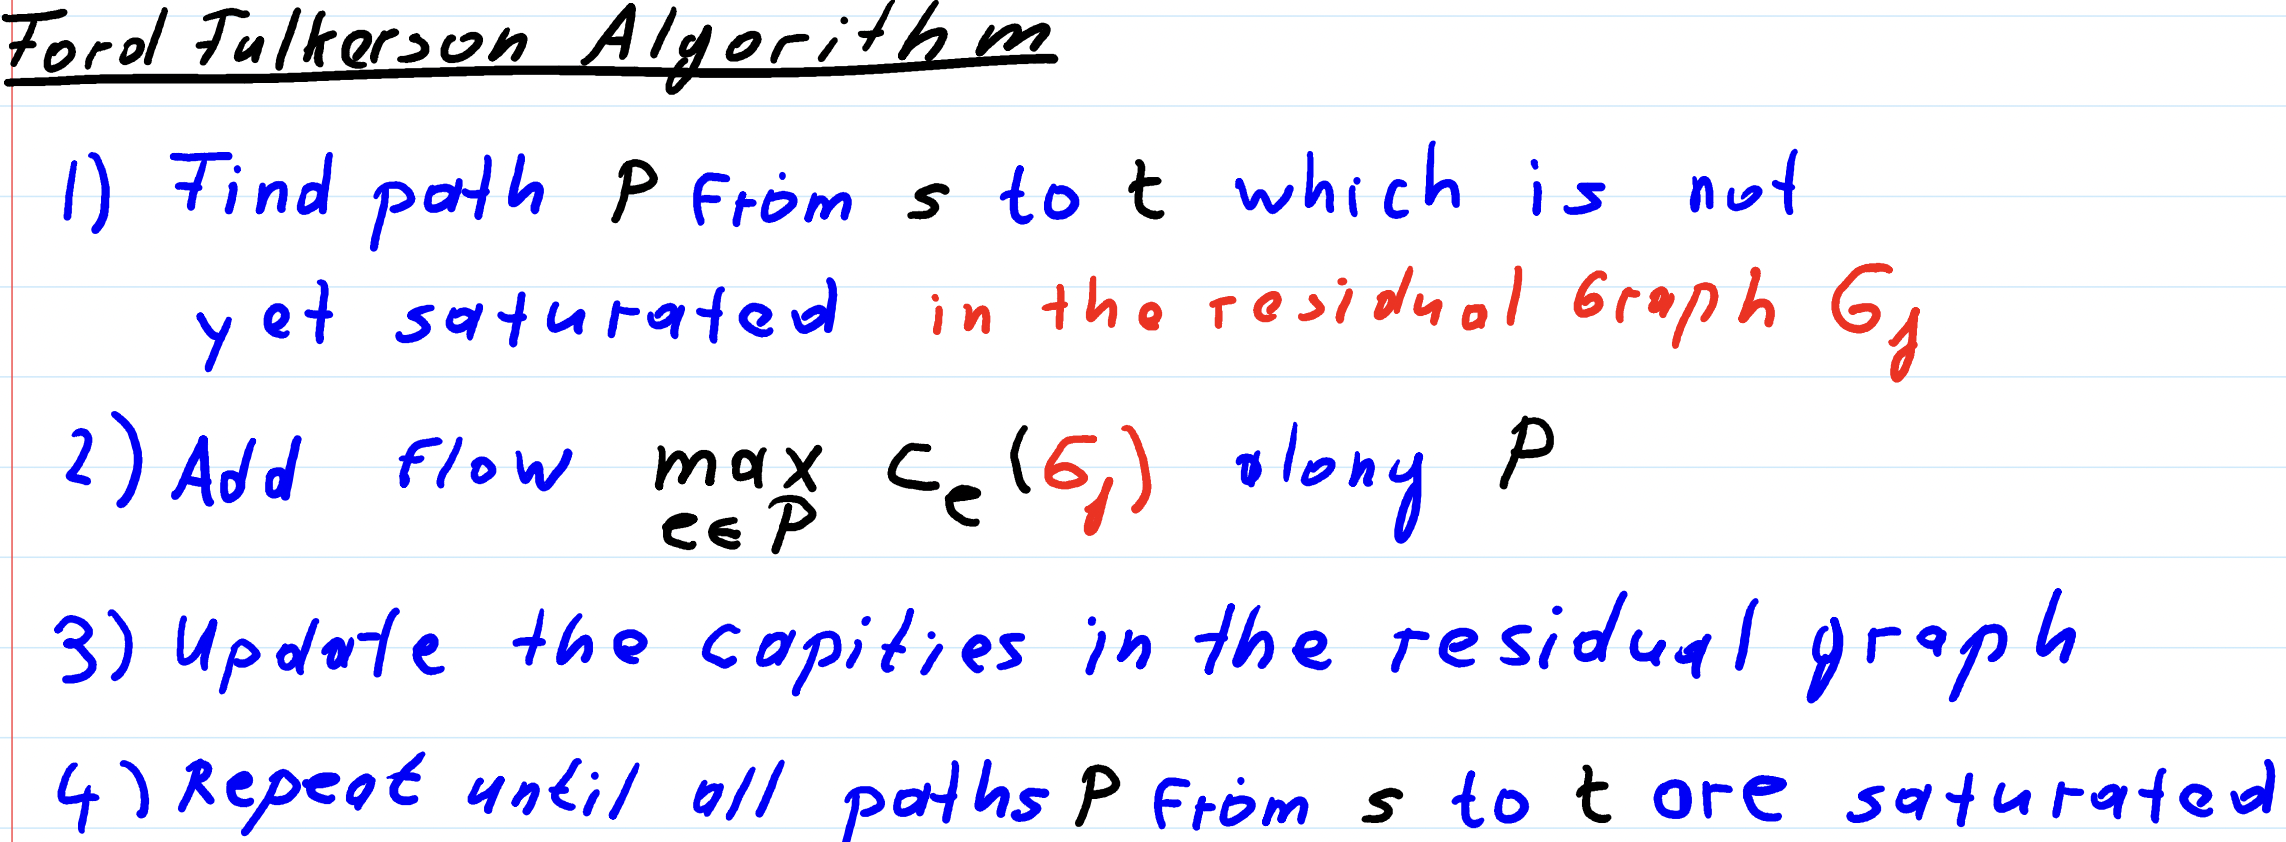 Ford Fulkerson Algorithm
1) Find path P From s to t which is not
yet saturated in the residual Graph G_f
2) Add flow max c_e (G_f) along P
e∈P
3) Update the capities in the residual graph
4) Repeat until all paths P From s to t are saturated